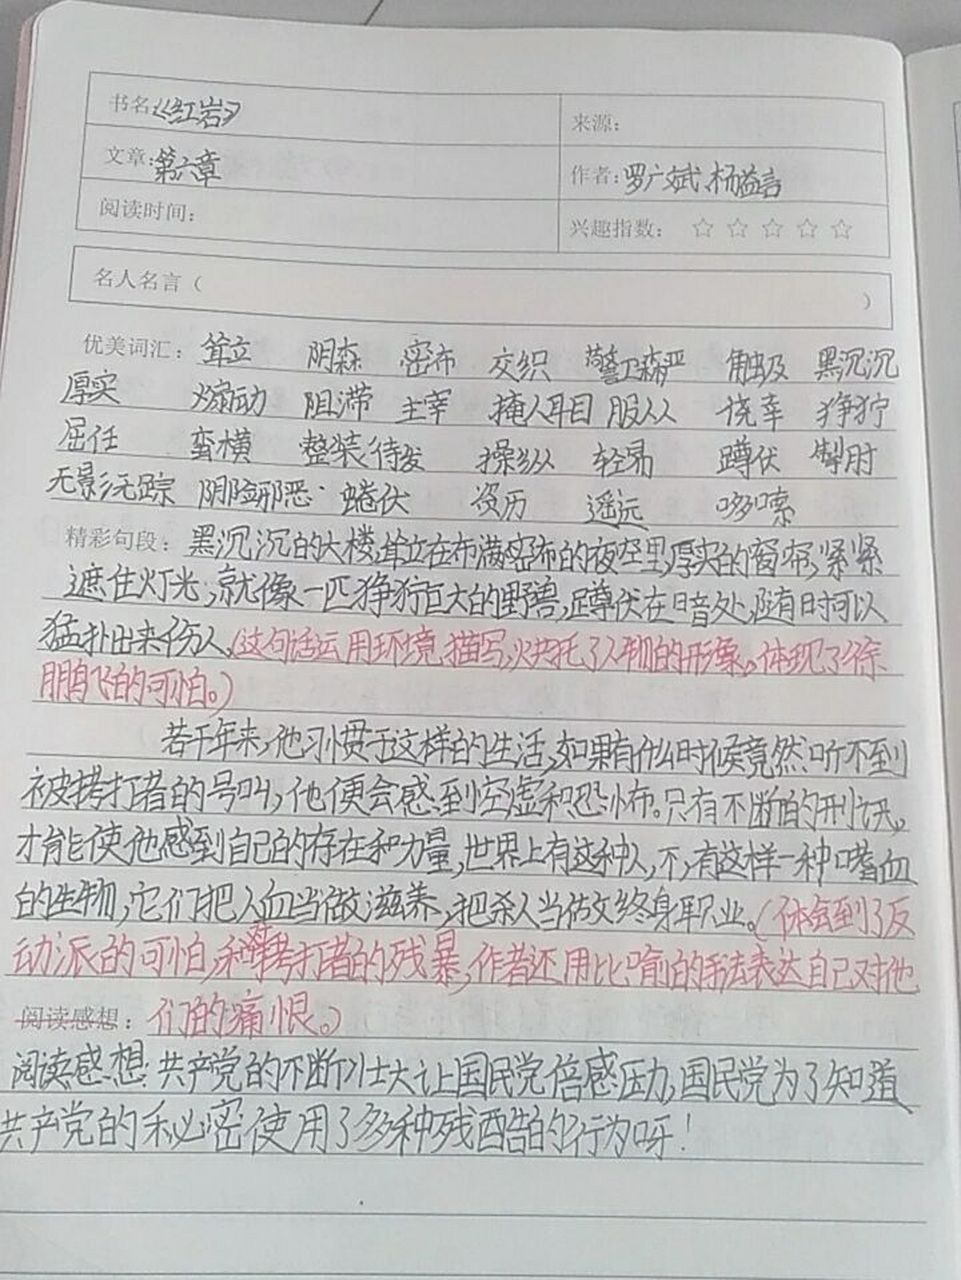 书名：《红岩》 来源：
文章：第六章 作者：罗广斌、杨益言
阅读时间： 兴趣指数：☆☆☆☆☆
名人名言（ ）
优美词汇：耸立 阴森 密布 交织 警卫森严 触及 黑沉沉
厚实 煽动 阻滞 主宰 掩人耳目 服从 侥幸 狰狞
屈任 蛮横 整装待发 操纵 轻易 蹲伏 掣肘
无影无踪 阴险邪恶 蜷伏 资历 遥远 哆嗦
精彩句段：黑沉沉的大楼，耸立在布满密布的夜空里，厚实的窗帘，紧紧
遮住灯光，就像一匹狰狞巨大的野兽，蹲伏在暗处，随时可以
猛扑出来伤人。（这句话运用环境描写，烘托了人物的形象。体现了徐
鹏飞的可怕。）
若干年来，他习惯于这样的生活，如果有什么时候竟然听不到
被拷打者的号叫，他便会感到空虚和恐怖。只有不断的刑讯，
才能使他感到自己的存在和力量，世界上有这种人，不，有这样一种嗜血
的生物，它们把人血当做滋养，把杀人当做终身职业。（体会到了反
动派的可怕，和拷打者的残暴，作者还用比喻的手法表达自己对他
阅读感想：们的痛恨。）
阅读感想：共产党的不断壮大让国民党倍感压力，国民党为了知道
共产党的秘密使用了多种残酷的行为呀！